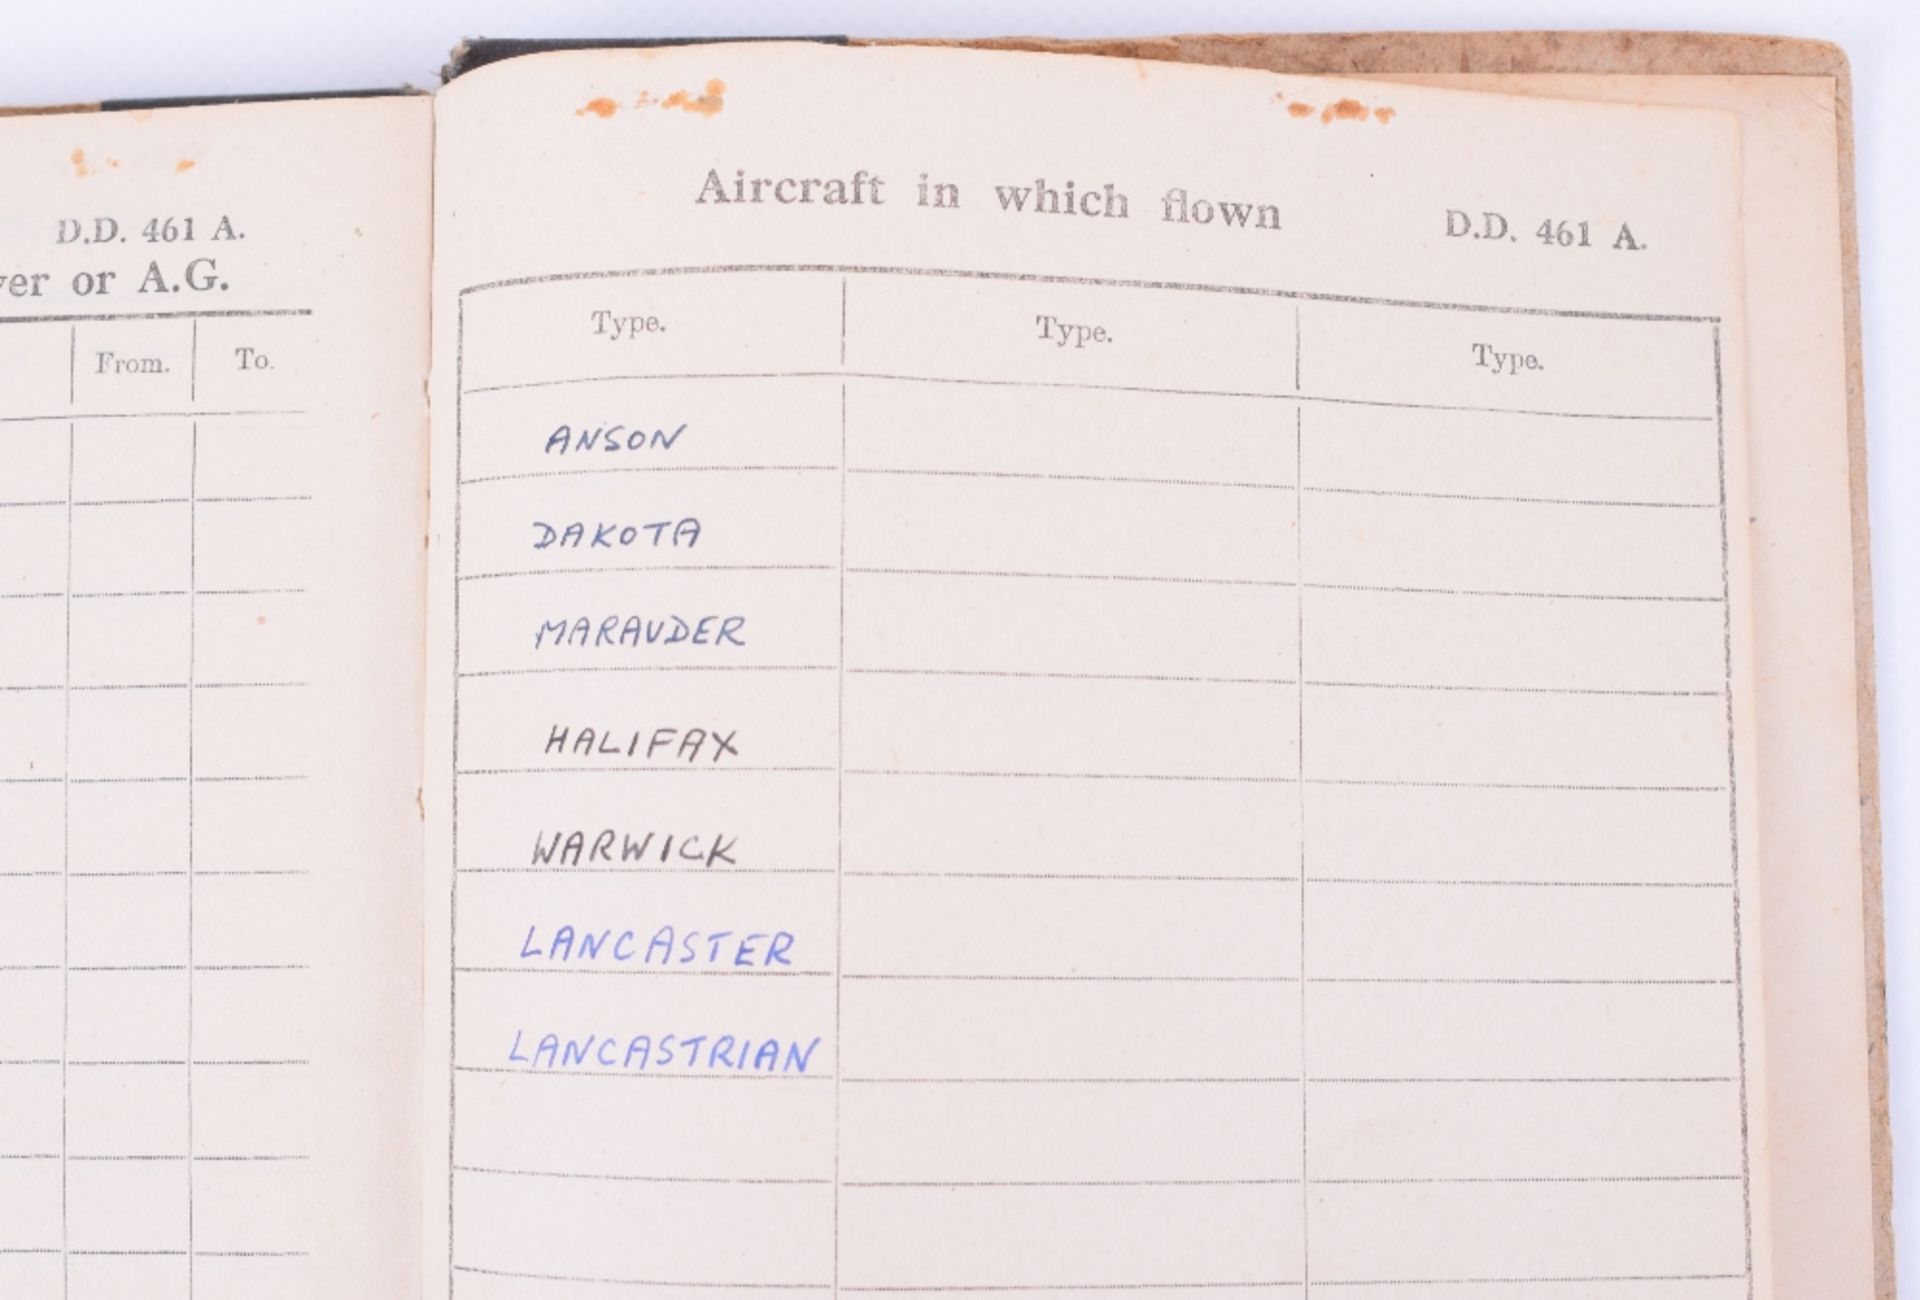 D.D. 461 A.
ver or A.G.
From. To.
Aircraft in which flown D.D. 461 A.
Type. Type. Type.
ANSON
DAKOTA
MARAUDER
HALIFAX
WARWICK
LANCASTER
LANCASTRIAN